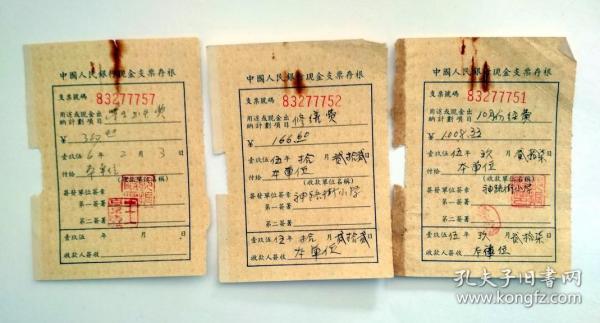 中國人民銀行現金支票存根
支票號碼 83277757
用途或現金出
納計劃項目
¥
壹玖伍 6 年 2 月 3 日
付給 本單位
(收款單位名稱)
簽發單位簽章
第一簽署
第二簽署
壹玖伍 年 月 日
收款人簽收
中國人民銀行現金支票存根
支票號碼 83277752
用途或現金出
納計劃項目 修儀費
¥ 166.50
壹玖伍伍年拾月貳拾貳日
付給 本單位
(收款單位名稱)
簽發單位簽章 神路街小学
第一簽署
第二簽署
壹玖伍伍年拾月貳拾貳日
收款人簽收 本單位
中國人民銀行現金支票存根
支票號碼 83277751
用途或現金出
納計劃項目 10月份经费
¥ 1008.33
壹玖伍伍年玖月貳拾柒日
付給 本單位
(收款單位名稱)
簽發單位簽章 神路街小学
第一簽署
第二簽署
壹玖伍伍年玖月貳拾柒日
收款人簽收 本單位
孔夫子旧书网
www.kongfz.com